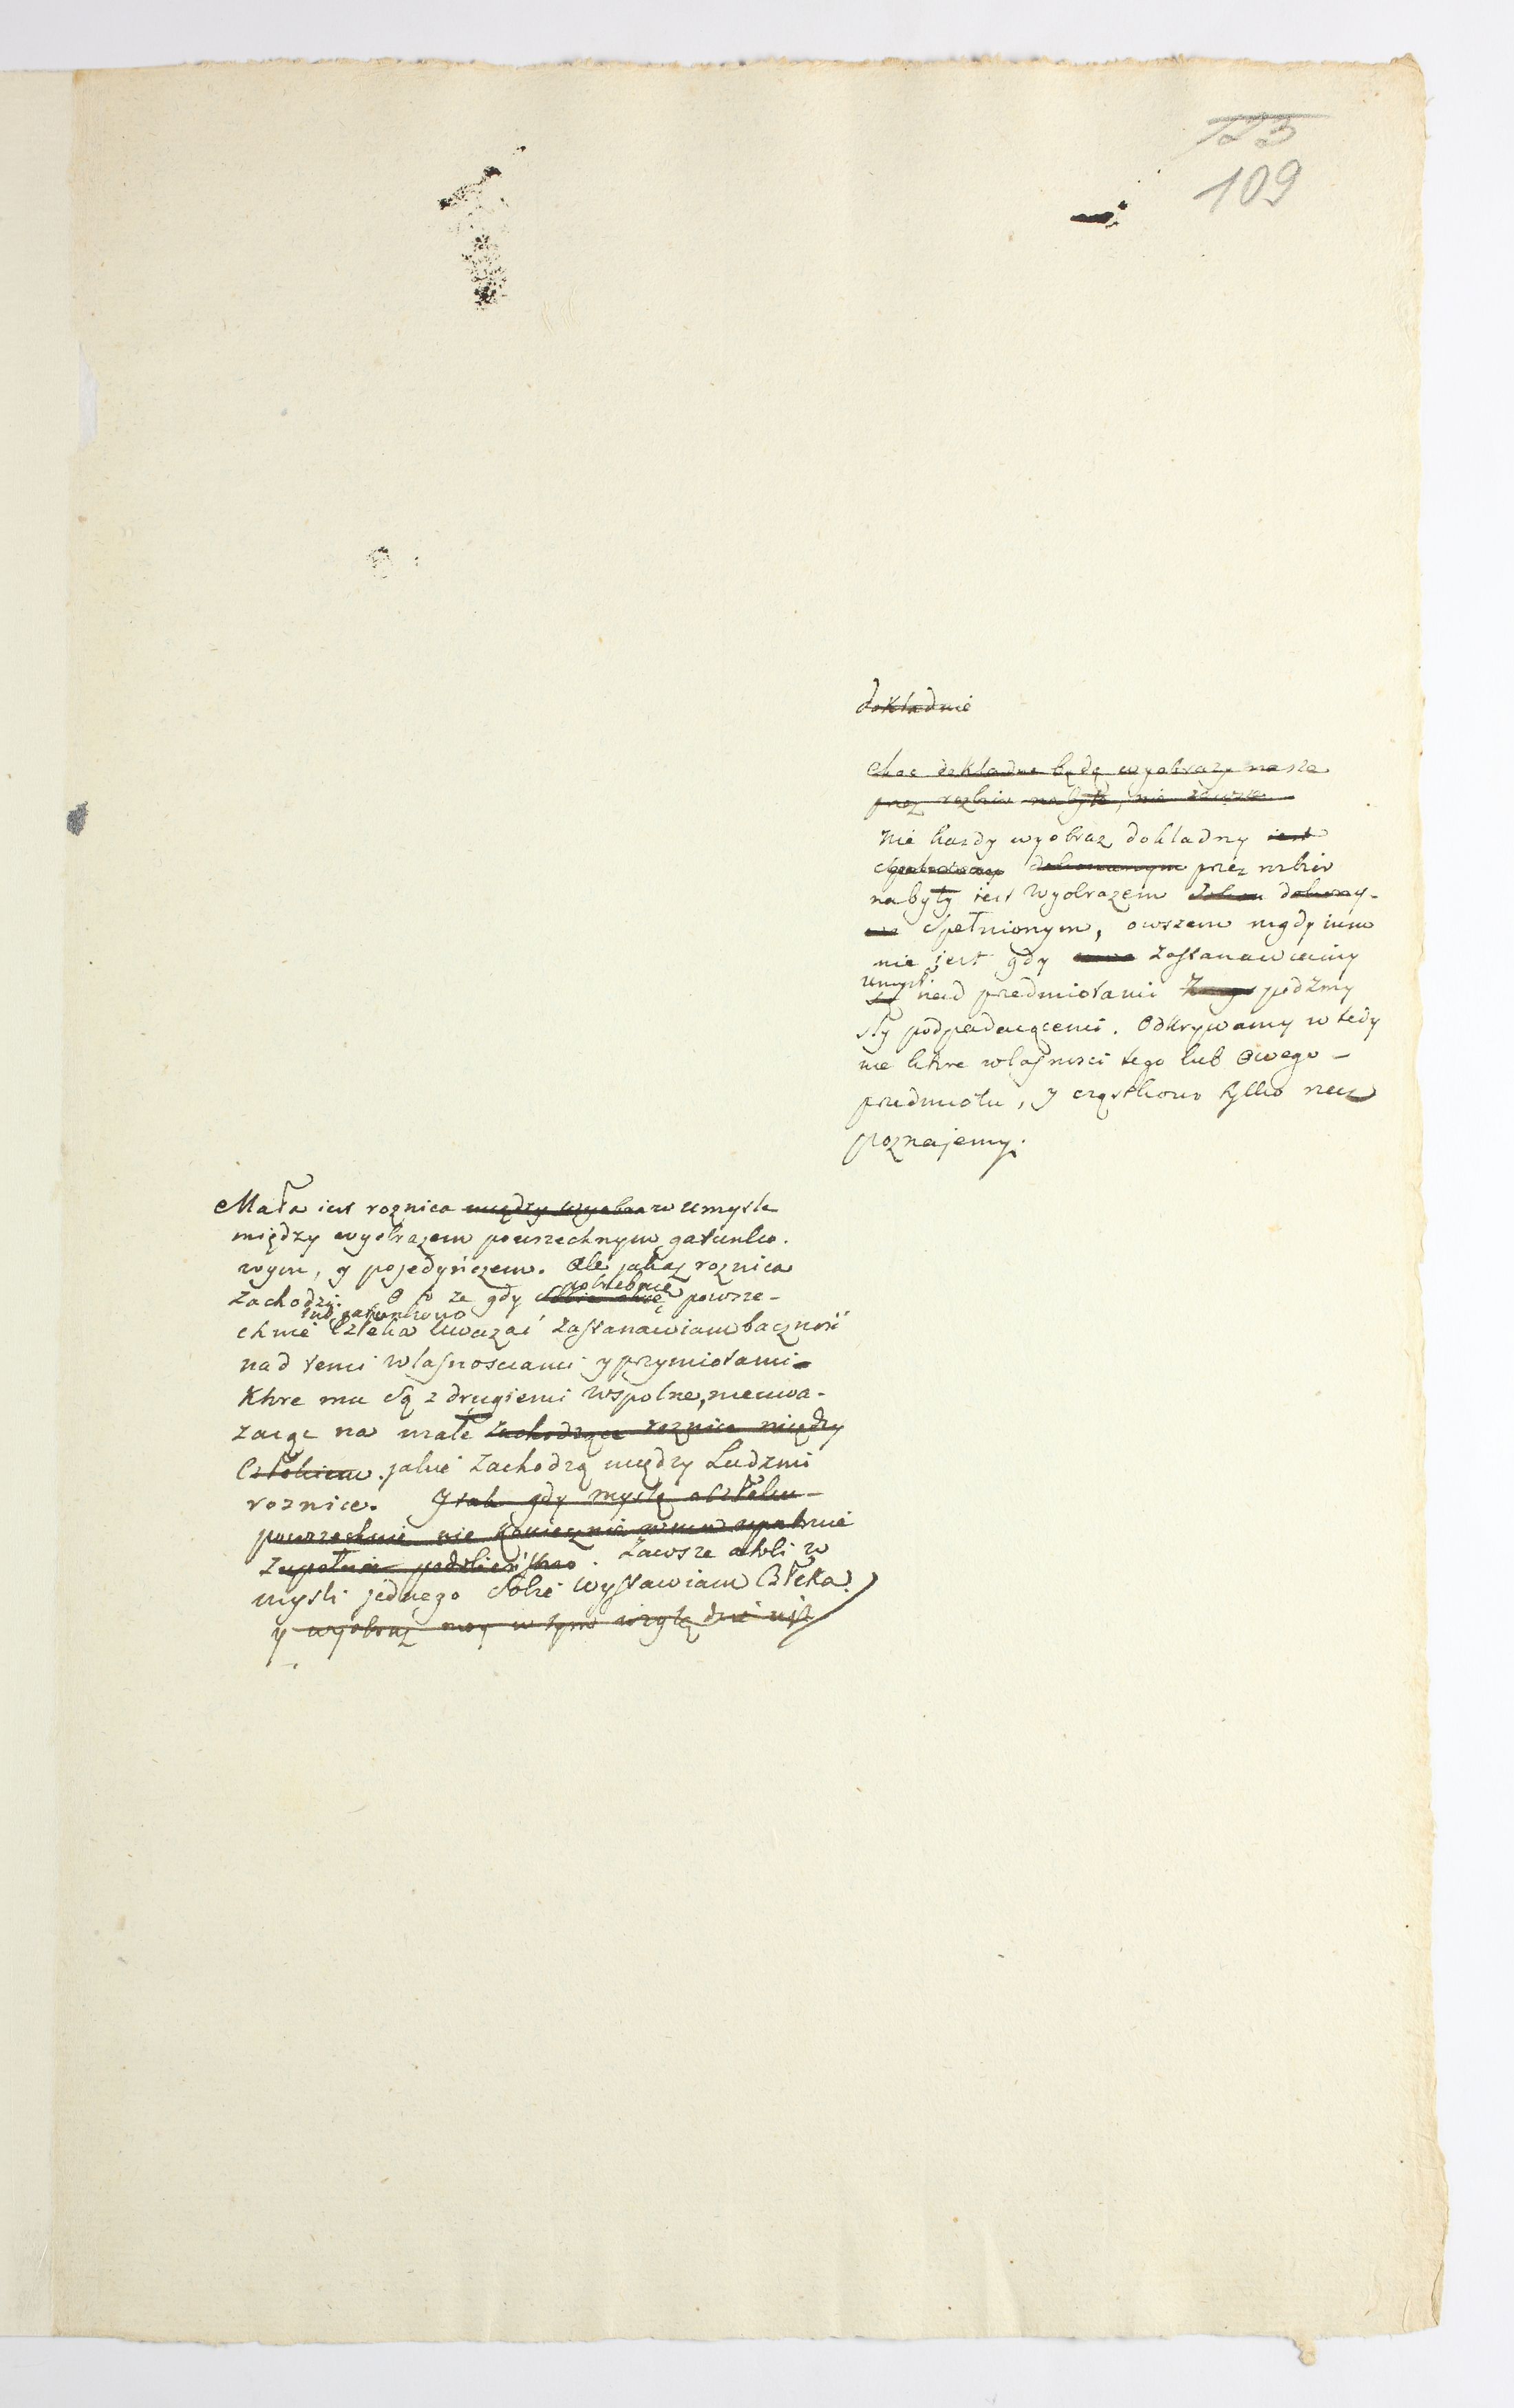 123
109
dokładnie
Choc dokładne będą wyobrazy nasze
przez rozbior nabyte, nie zawsze
Nie kazdy wyobraz dokladny iest
przez rozbior
nabyty iest Wyobrazem dokony-
Spełnionym, owszem nigdy inm
nie jest gdy zastanawiamy
umysł
się nad przedmiotami pod zmy
sły podpadaiącemi. Odkrywamy w tedy
nie ktore własnosci tego lub Owego -
przedmiotu, y cząstkowo tylko rzecz
poznajemy.
Mała iest roznica między wyobra w Umysle
między wyobrazem powszechnym gatunko.
wym, y pojedyńczem. Ale jakaz roznica
zachodzi. O to ze gdy powsze-
lub gatunkowo
chnie Człeka Uwazać zastanawiam bacznosć
nad temi własnosciami y przymiotami
Ktore mu są z drugiemi wspolne, nieuwa-
zaiąc na małe zachodzące roznice między
Człekiem. jakie zachodzą między Ludzmi
roznice. J tak gdy myslę o Człeku -
powszechnie nie koniecznie
zupełnie . Zawsze atoli w
mysli jednego Sobie wystawiam Człeka.
y wyobraz moy w tym względzie